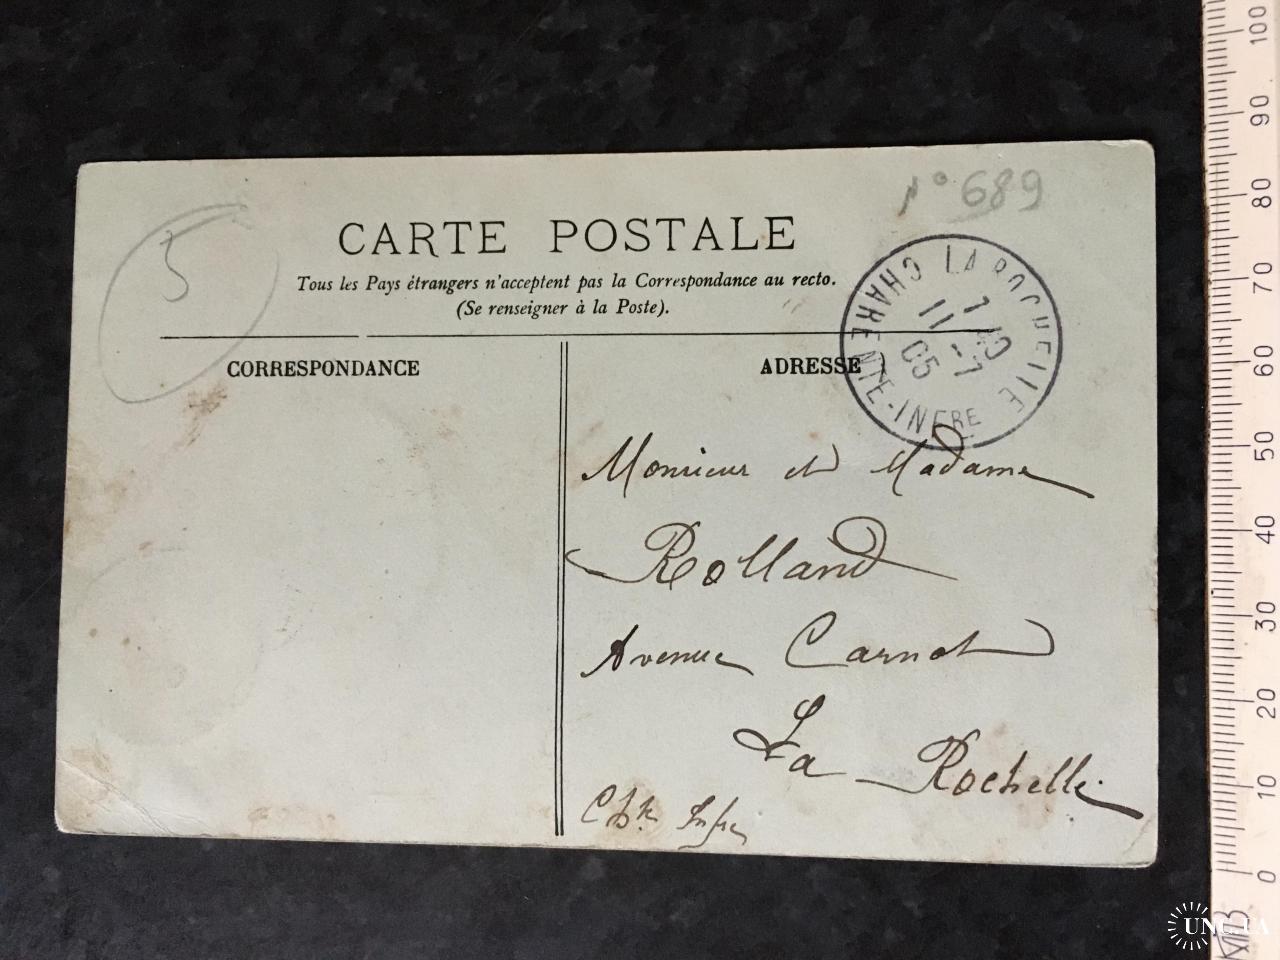 N° 689
5
CARTE POSTALE
Tous les Pays étrangers n'acceptent pas la Correspondance au recto.
(Se renseigner à la Poste).
CORRESPONDANCE
ADRESSE
LA ROCHELLE
CHARENTE-INFRE
11 -7
05
Monsieur et Madame
Rolland
Avenue Carnot
La Rochelle
Chte Infre
100
90
80
70
60
50
40
30
20
10
0
UNC.UA